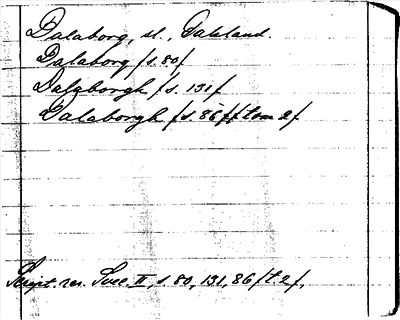 Dalaborg, sl., Dalsland.
Dalaborg /s. 80/
Dalaborgh /s. 131/
Dalaborgh /s. 86 // tom 2/
Script. rer. Svec. II, s. 80, 131, 86 / t. 2/.